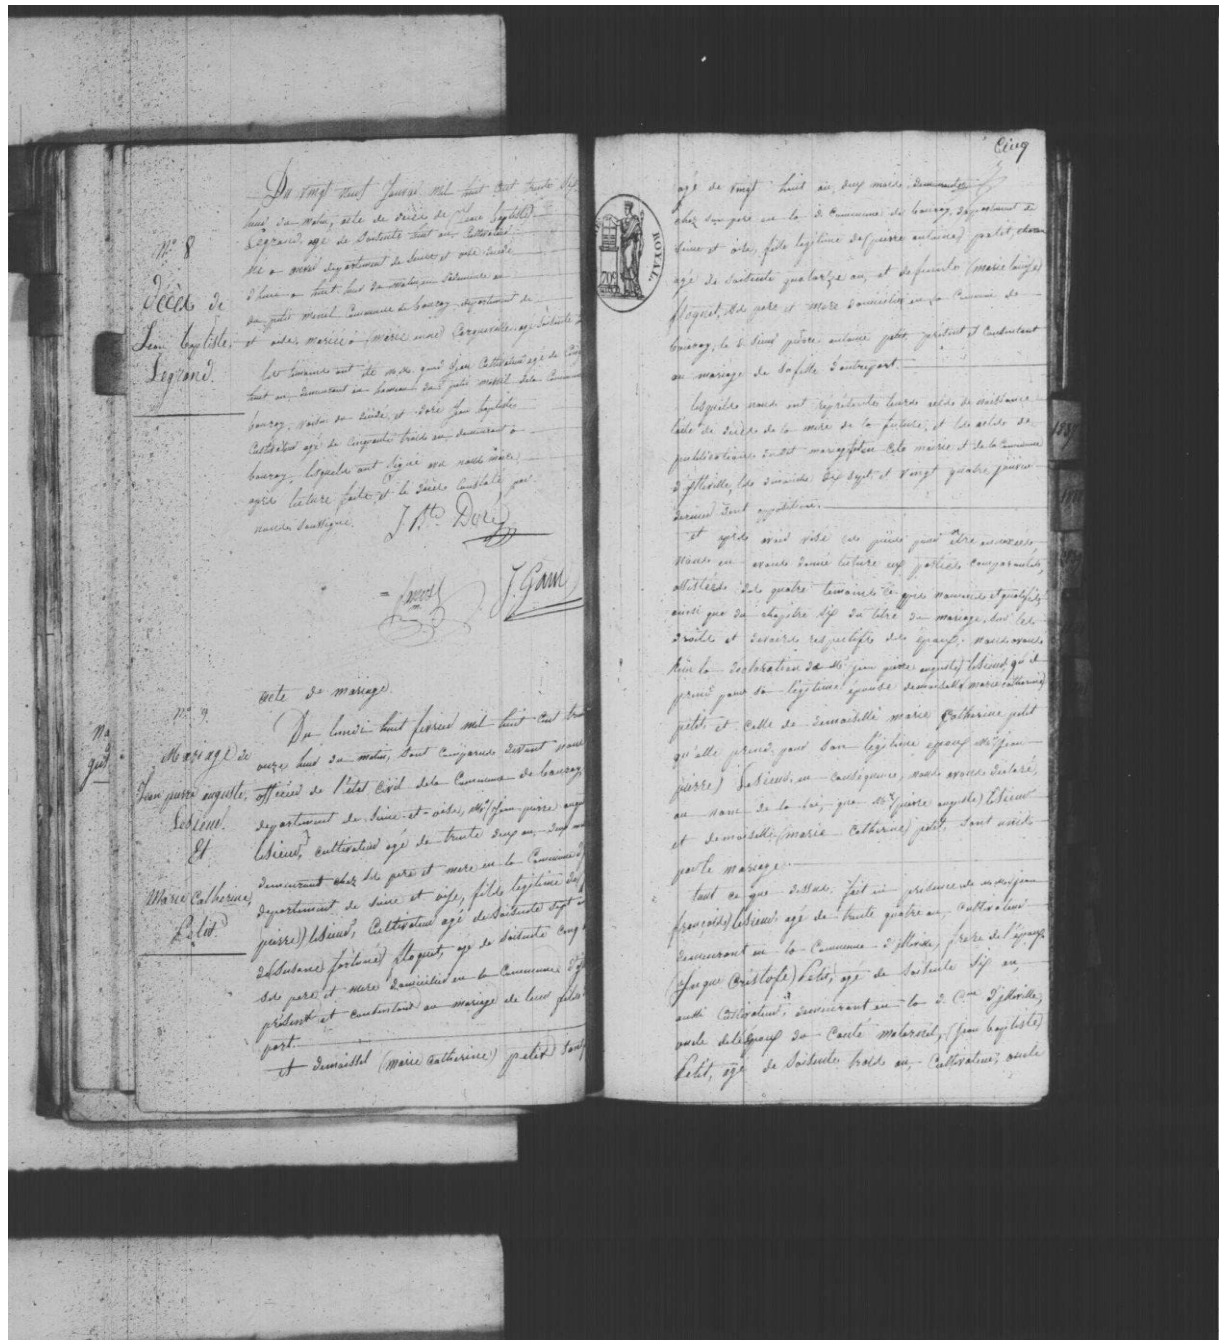 N° 8
Décès de
Jean baptiste
Legrand.
Du vingt neuf Janvier mil huit cent trente sept
heure du matin, acte de décès de Jean baptiste
Legrand, agé de soixante huit ans Cultivateur
né a département de Seine et oise décédé
d'hier a huit heure du matin, en sa demeure au
du petit Mesnil Commune de bouray, département de
et oise, marié à marie anne agé soixante
Les témoins ont été M.M. gand Jean Cultivateur agé de cinq
huit ans, demeurant au hameau du petit mesnil de la Commune
bouray, voisin du décédé, et Doré Jean baptiste
Cultivateur agé de Cinquante trois ans demeurant à
bouray, lesquels ont signé avec nous maire
après lecture faite et le décès constaté par
nous soussigné.
J. Bte Doré
J. Gam
N° 9.
Mariage de
Jean pierre auguste,
Lesieur.
Et
Marie Catherine
Petit.
acte de mariage.
Du lundi huit fevrier mil huit cent trente
onze heure du matin, sont comparus devant nous
officier de l'état Civil de la Commune de bouray,
departement de Seine-et-oise, Mr (Jean pierre augu
lesieur) cultivateur agé de trente deux ans, deux mois
demeurant chez ses pere et mere en la Commune d'
departement de Seine et oise, fils legitime de
pierre) lesieur, Cultivateur agé de soixante sept an
de (Susane fortuné) Hoquet, agé de soixante cinq
ses pere et mere domiciliés en la Commune d'
présent et consentant au mariage de leur fils
part
et demoisel (marie Catherine) petit sans
Cinq
agé de vingt huit ans, deux mois, demeurante
chez son pere en la d. Commune de bouray, département de
Seine et oise, fille legitime de (pierre antoine) petit,
agé de soixante quatorze ans, et defeinte (marie louise)
Hoquet, ses pere et mere domiciliés en la Commune de
bouray, le d. Sieur pierre antoine petit, présent et Consentant
au mariage de sa fille d'autrepart.
lesquels nous ont représentés leurs actes de naissance
l'acte de décès de la mere de la future, et les actes de
publications dudit mariage faites en cete mairie et de la Commune
d'itteville, les dimanche dix sept et vingt quatre janvier
dernier sans opposition.
et après avoir visé ces pièces pour être annexés
nous en avons donné lecture aux parties comparantes,
assistées des quatre temoins ci après nommés et qualifiés
ainsi que du chapitre six du titre du mariage, sur les
droits et devoirs respectifs des époux. nous avons
la declaration de Mr jean pierre auguste) lesieur, qu'il
prend pour sa legitime épouse demoiselle (marie catherine)
petit, et celle de demoiselle marie Catherine petit
qu'elle prend, pour son legitime époux Mr (jean
pierre) Lesieur, en conséquence, nous avons declaré,
au nom de la loi, que Mr (pierre auguste) lesieur
et demoiselle (marie Catherine) petit, sont unis
par le mariage.
tout ce que dessus, fait en présence de M.M. jean
françois) lesieur agé de trente quatre ans, cultivateur
demeurant en la Commune d'itteville, frere de l'époux
(Jaque Cristofe) Petit, agé de soixante six ans,
aussi Cultivateur, demeurant en la d. Cne d'itteville,
oncle de l'époux du Coté maternel, (Jean baptiste)
Petit, agé de soixante trois ans, Cultivateur, oncle
ROYAL.
1837